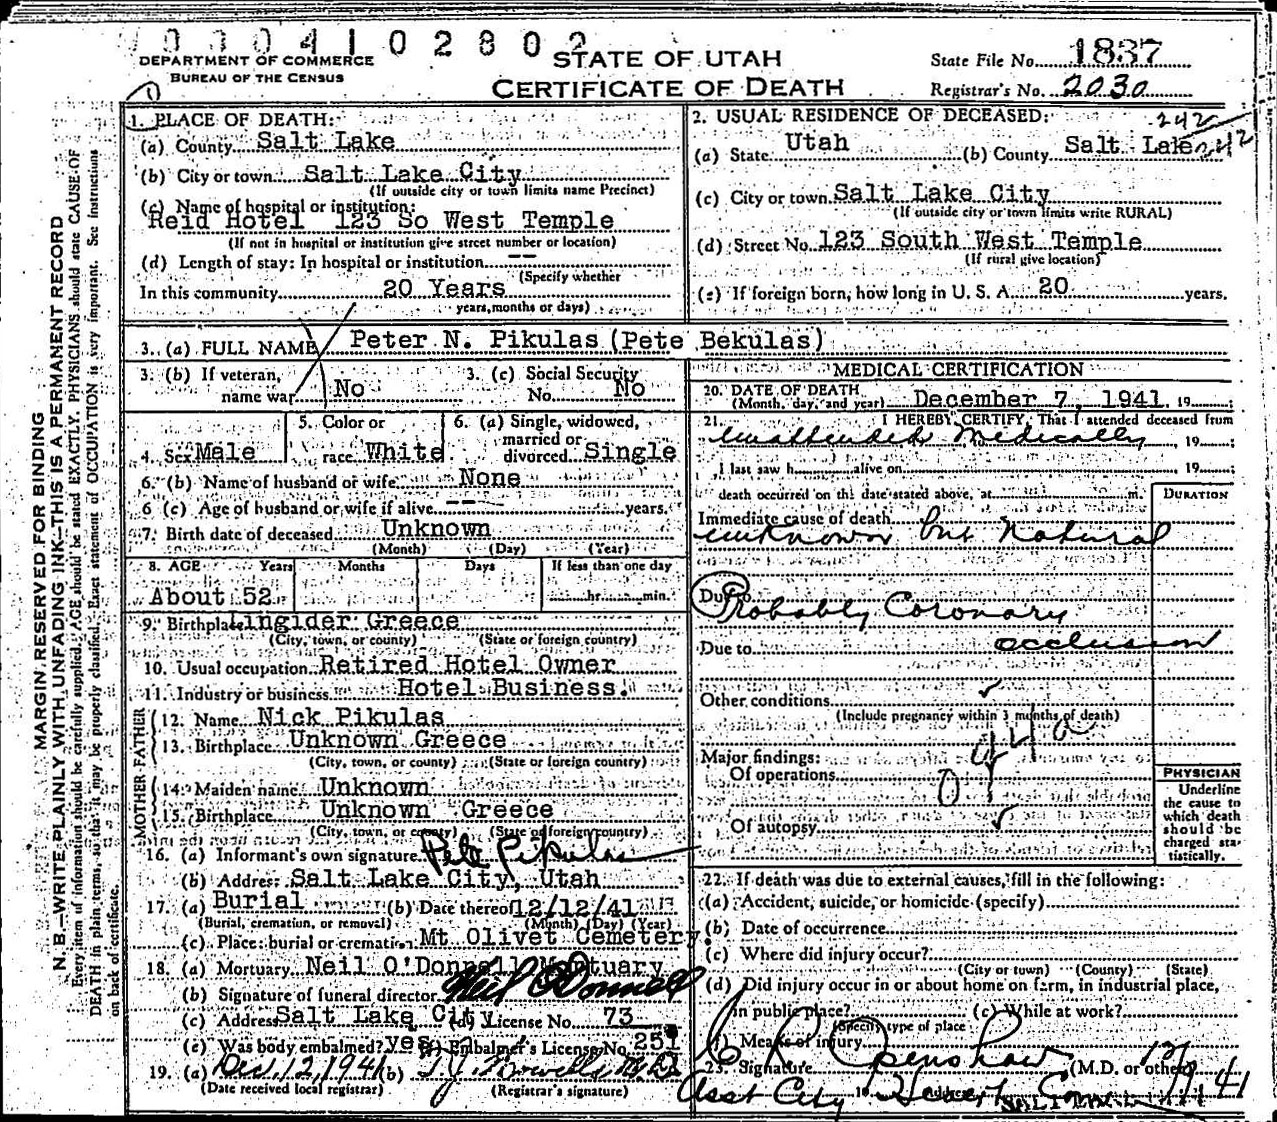 0304102802
DEPARTMENT OF COMMERCE
BUREAU OF THE CENSUS
STATE OF UTAH
CERTIFICATE OF DEATH
State File No. 1837
Registrar's No. 2030
MARGIN RESERVED FOR BINDING
N. B.—WRITE PLAINLY WITH UNFADING INK—THIS IS A PERMANENT RECORD
Every item of information should be carefully supplied. AGE should be stated EXACTLY. PHYSICIANS should state CAUSE OF
DEATH in plain terms, so that it may be properly classified. Exact statement of OCCUPATION is very important. See instructions
on back of certificate.
1. PLACE OF DEATH:
(a) County Salt Lake
(b) City or town Salt Lake City
(If outside city or town limits name Precinct)
(c) Name of hospital or institution:
Reid Hotel 123 So West Temple
(If not in hospital or institution give street number or location)
(d) Length of stay: In hospital or institution --
(Specify whether
In this community 20 Years
years, months or days)
2. USUAL RESIDENCE OF DECEASED:
242
(a) State Utah (b) County Salt Lake 242
(c) City or town Salt Lake City
(If outside city or town limits write RURAL)
(d) Street No. 123 South West Temple
(If rural give location)
(e) If foreign born, how long in U. S. A. 20 years.
3. (a) FULL NAME Peter N. Pikulas (Pete Bekulas)
3. (b) If veteran,
name war No
3. (c) Social Security
No. No
4. Sex Male
5. Color or
race White
6. (a) Single, widowed,
married or
divorced Single
6. (b) Name of husband or wife None
6 (c) Age of husband or wife if alive -- years.
7. Birth date of deceased Unknown
(Month) (Day) (Year)
8. AGE Years Months Days If less than one day
About 52 hr. min.
9. Birthplace Lingider Greece
(City, town, or county) (State or foreign country)
10. Usual occupation Retired Hotel Owner
11. Industry or business Hotel Business.
FATHER
12. Name Nick Pikulas
13. Birthplace Unknown Greece
(City, town, or county) (State or foreign country)
MOTHER
14. Maiden name Unknown
15. Birthplace Unknown Greece
(City, town, or county) (State or foreign country)
16. (a) Informant's own signature Pete Pikulas
(b) Address Salt Lake City, Utah
17. (a) Burial (b) Date thereof 12/12/41
(Burial, cremation, or removal) (Month) (Day) (Year)
(c) Place: burial or cremation Mt Olivet Cemetery.
18. (a) Mortuary Neil O'Donnell Mortuary
(b) Signature of funeral director Neil O'Donnell
(c) Address Salt Lake City (d) License No. 73
(e) Was body embalmed? yes (f) Embalmer's License No. 251
19. (a) Dec. 12, 1941 (b)
(Date received local registrar) (Registrar's signature)
MEDICAL CERTIFICATION
20. DATE OF DEATH
(Month, day, and year) December 7, 1941. 19
21. I HEREBY CERTIFY, That I attended deceased from
Unattended Medically, 19 ;
I last saw h alive on 19 ;
death occurred on the date stated above, at m.
DURATION
Immediate cause of death
unknown but Natural
Due to
Probably Coronary
Due to occlusion
Other conditions
(Include pregnancy within 3 months of death)
94a
Major findings:
Of operations
Of autopsy
PHYSICIAN
Underline
the cause to
which death
should be
charged sta-
tistically.
22. If death was due to external causes, fill in the following:
(a) Accident, suicide, or homicide (specify)
(b) Date of occurrence
(c) Where did injury occur?
(City or town) (County) (State)
(d) Did injury occur in or about home on farm, in industrial place,
in public place? (e) While at work?
(Specify type of place)
(f) Means of injury
23. Signature C R Openshaw (M.D. or other)
Asst City Health Com